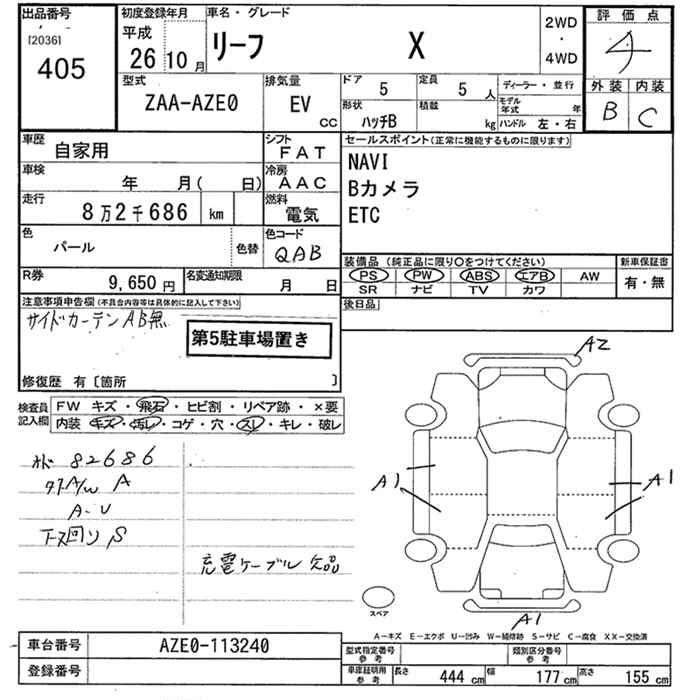 出品番号
[2036]
405
初度登録年月
平成
26 10月
車名・グレード
リーフ X
2WD
・
4WD
評価点
4
外装 内装
B C
型式
ZAA-AZE0
排気量
EV
CC
ドア
5
定員
5 人
形状
ハッチB
積載
kg
ディーラー・並行
モデル年式 年
ハンドル 左・右
車歴
自家用
シフト
FAT
車検
年 月( 日)
冷房
AAC
走行
8万2千686 km
燃料
電気
色
パール
色替
色コード
QAB
R券
9,650円
名変通知期限
月 日
セールスポイント(正常に機能するものに限ります)
NAVI
Bカメラ
ETC
装備品(純正品に限り○をつけてください)
PS PW ABS エアB AW
SR ナビ TV カワ
新車保証書
有・無
後日品
注意事項申告欄(不具合内容等は具体的に記入して下さい)
サイドカーテンAB無
第5駐車場置き
修復歴 有〔箇所 〕
検査員記入欄
FW キズ・飛石・ヒビ割・リペア跡・×要
内装 キズ・汚レ・コゲ・穴・スレ・キレ・破レ
82686
A/W A
A-U
S
充電ケーブル欠品
A2
A1
A1
A1
スペア
A-キズ E-エクボ U-凹み W-補修跡 S-サビ C-腐食 XX-交換済
車台番号
AZE0-113240
登録番号
型式指定番号
参考
類別区分番号
参考
車庫証明用
参考
長さ 444 cm 幅 177 cm 高さ 155 cm